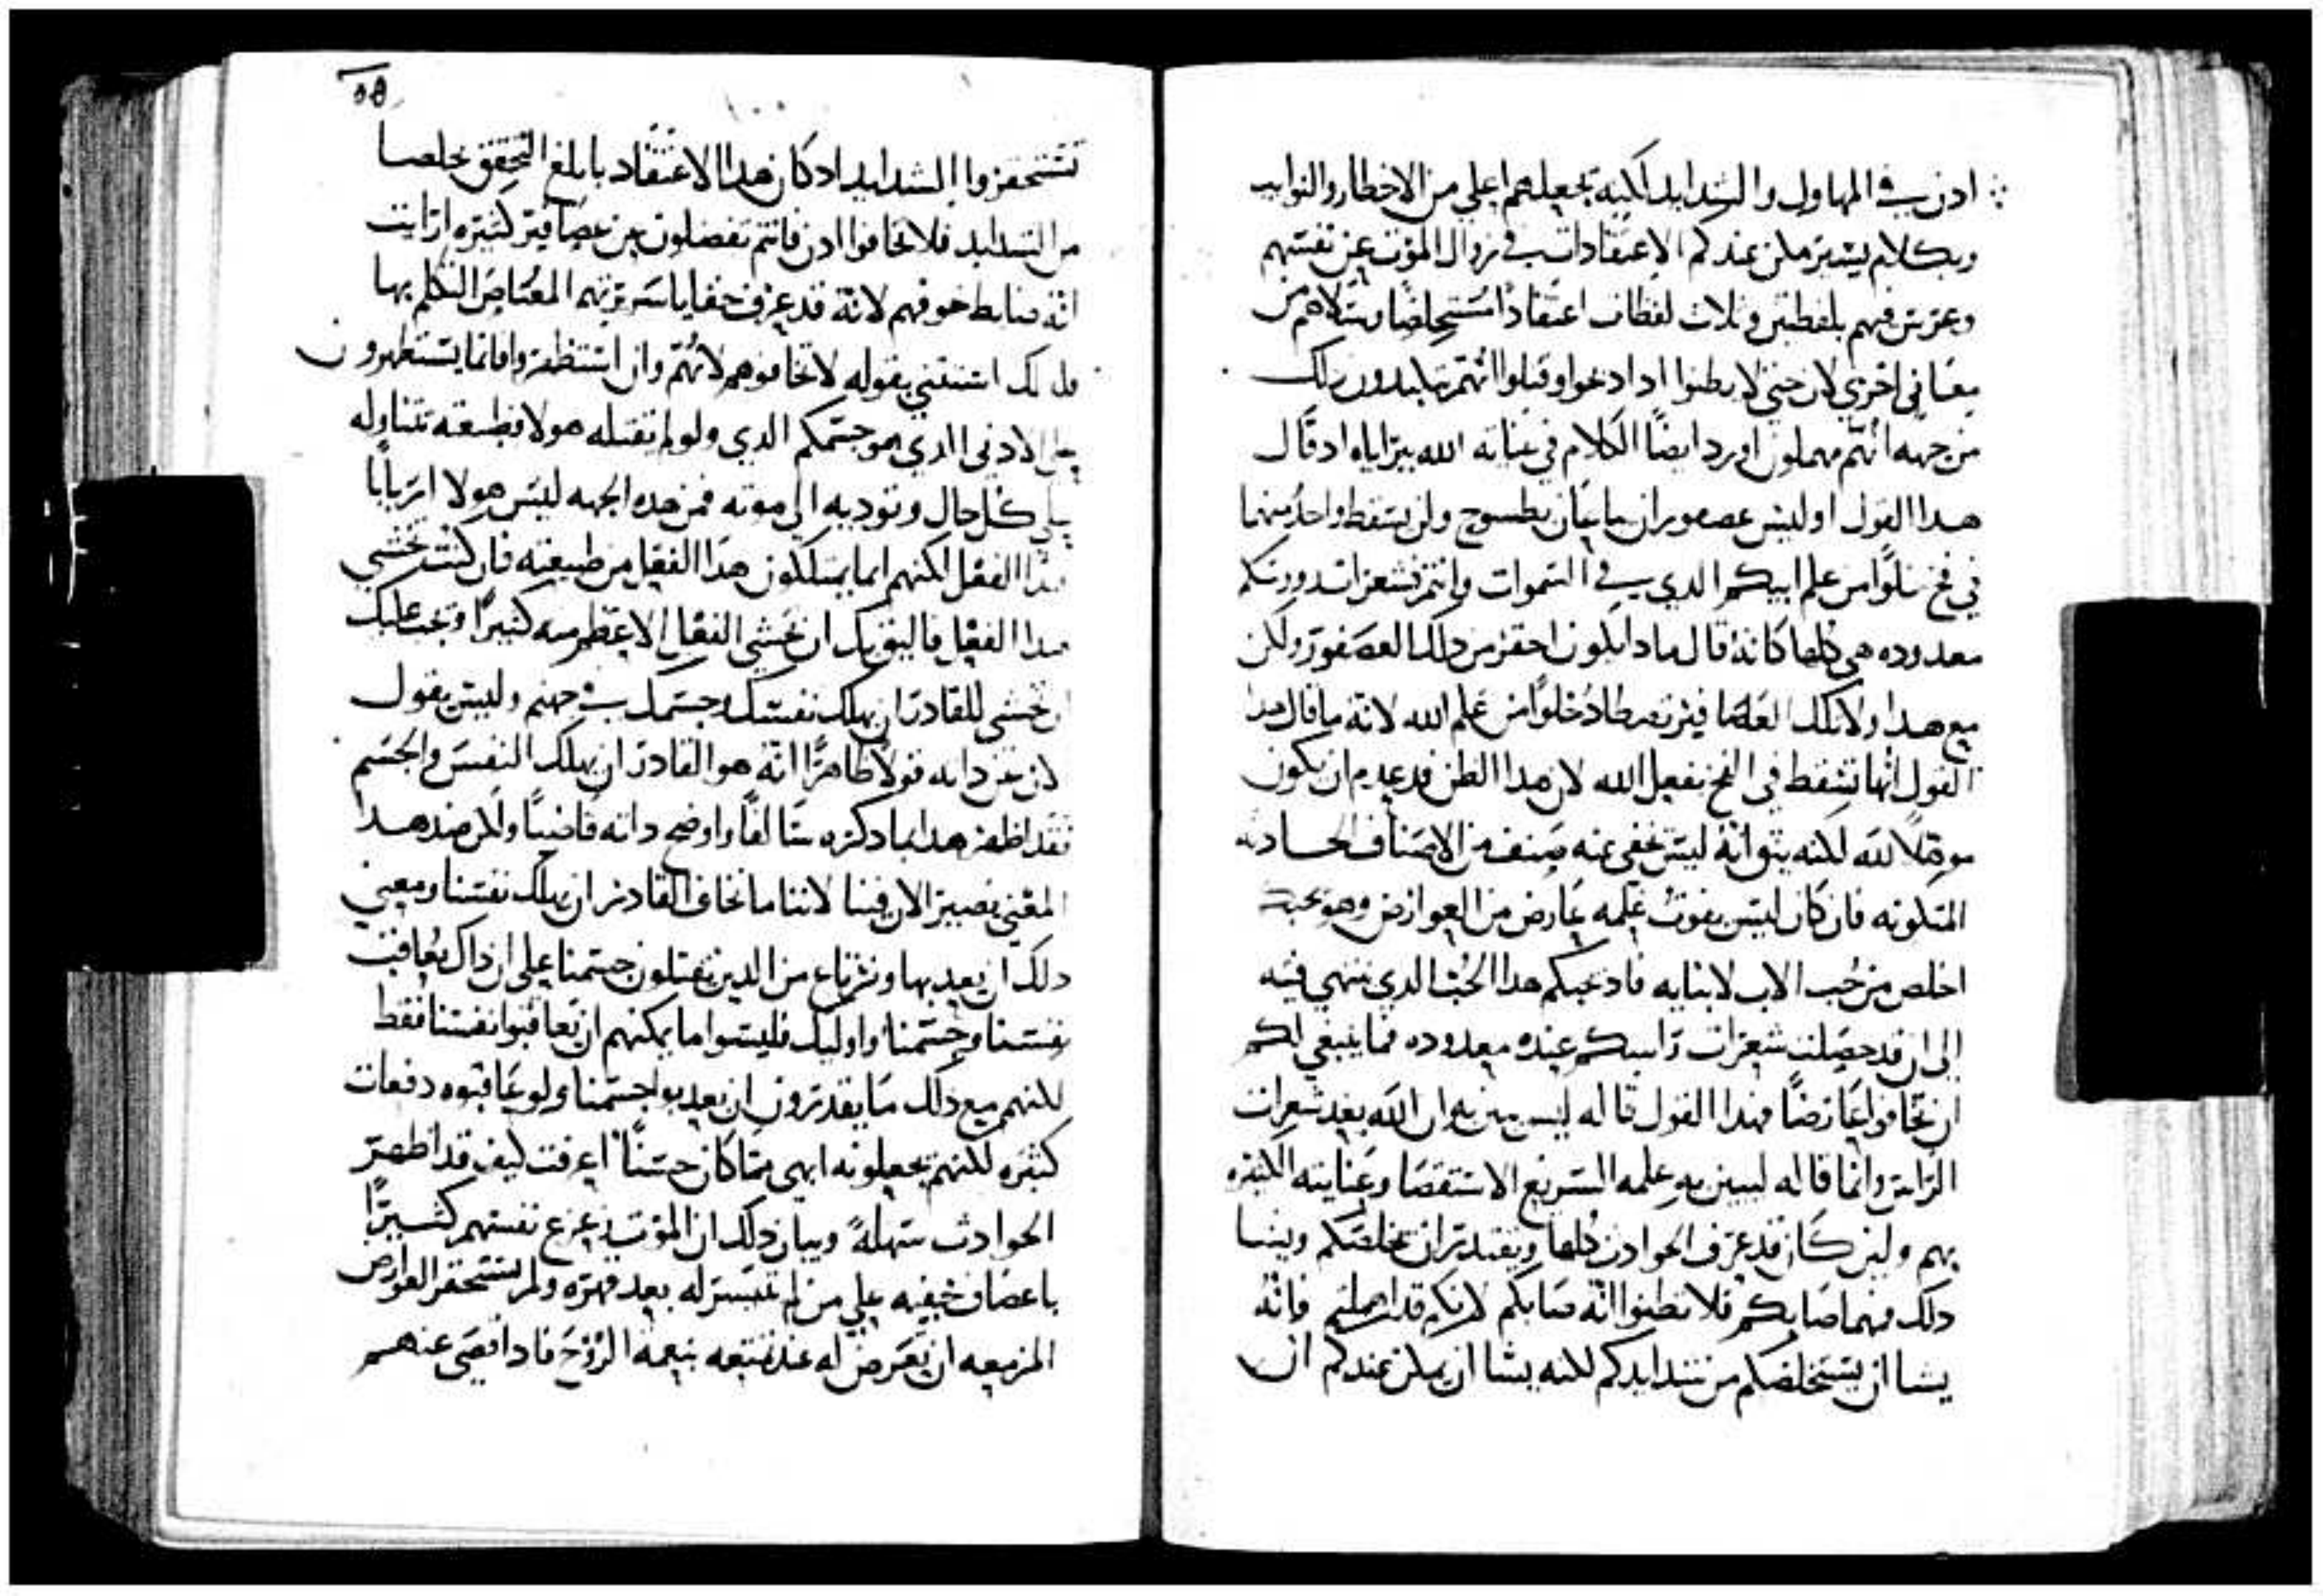 ادن في المهاول والشدايد لكنه يجعلهم اعلي من الاخطار والنوايب
وبكلام يسير ملن عندكم الاعتقادات في زوال الموت عن نفسهم
وغرس فيهم بلفظتين وثلاث لفظات اعتقادًا مستخلصًا وسلاهم من
معاني اخري لان حتي لا يظنوا اذا دعوا وقتلوا انهم يكابدون ذلك
من جهه انهم مهملون اورد ايضًا الكلام في عنايه الله ببراياه اد قال
هدا القول اوليس عصفوران يباعان بطسوج ولن يسقط واحد منهما
في فخ خلوًا من علم ابيكم الدي في السموات وانتم فشعرات رووسكم
معدوده هي كلها كانه قال مادا يكون احقر من دلك العصفور ولكن
مع هدا ولا تلك العلما فيز تصطاد خلوًا من علم الله لانه ما قال هدا
القول انها تسقط في الفخ بفعل الله لان هدا الظن قد عدم ان يكون
موهلًا لله لكنه ينوا انه ليس يخفي عنه صنف من الاصناف الحادثه
المتكونه فان كان ليس يفوت علمه عارض من العوارض وهو يحبكم
اخلص من حب الاب لابنايه فاد يحبكم هدا الحب الدي ينتهي فيه
الي ان قد حصلت شعرات راسكم عنده معدوده فما ينبغي لكم
ان تخافوا عارضًا فهدا القول قاله ليس مبين به ان الله يعد شعرات
الراس وانما قاله ليبين به علمه السريع الاستقصا وعنايته الكثيره
بهم ولين كان قد عرف الحوادث كلها ويقتدر ان يخلصكم ويشا
دلك فمهما صابكم فلا تظنوا انه صابكم لانكم قد اهملتم فانه
يشا ان يستخلصكم من شدايدكم لكنه يشا ان يملن عندكم ان
٥٥
تستحقروا الشدايد اد كان هدا الاعتقاد بابلغ التحقق يخلصنا
من الشدايد فلا تخافوا ادن فانتم تفضلون عن عصافير كثيره ارايت
انه ضابط خوفهم لانه قد عرف خفايا سريرتهم المعتاص التكلم بها
فلدلك استثني بقوله لا تخافوهم لانهم وان استظفروا فانما يستظهرون
علي الادني الدي هو جسمكم الدي ولو لم يقتله هولا فطبيعته تتناوله
علي كل حال وتوديه الي موته فمن هده الجهه ليس هولا اربابًا
هدا الفعل لكنهم انما يمتلكون هدا الفعل من طبيعته فان كنت تخشي
هدا الفعل فاليق بك ان تخشي الفعل الاعظم منه كثيرًا ويجب عليك
ان تخشي للقادر ان يهلك نفسك وجسمك في جهنم وليس يقول
لان عن داته قولًا ظاهرًا انه هو القادر ان يهلك النفس والجسم
فقد اظهر هدا بما دكره سالفًا واوضح داته قاضيًا والان ضد هدا
المعني يصير الان فينا لاننا ما نخاف القادر ان يهلك نفسنا ومعني
دلك ان يعدبها ونرتاع من الدين يقتلون جسمنا علي ان داك يعاقب
نفسنا وجسمنا واوليك فليسوا ما يمكنهم ان يعاقبوا نفسنا فقط
لكنهم مع دلك ما يقدرون ان يعدبوا جسمنا ولو عاقبوه دفعات
كثيره لكنهم يجعلونه ابهي مما كان حسنًا اعرفت كيف قد اظهر
الحوادث سهلة وبيان دلك ان الموت زعزع نفسهم كثيرًا
باعصاف خفيه علي من لم تيسر له بعد قهره ولم يستحقر العوارض
المزمعه ان تعرض له عند تمتعه بنعمة الروح فاد اقصي عنهم